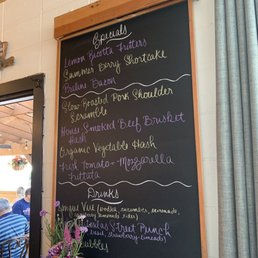 Specials
Lemon Ricotta Fritters
Summer Berry Shortcake
Slow-Roasted Pork Shoulder
Scramble
House Smoked Beef Brisket
Hash
Organic Vegetable Hash
Fresh Tomato-Mozzarella
Frittata
Drinks
(vodka, cucumber, lemonade,
Street Punch